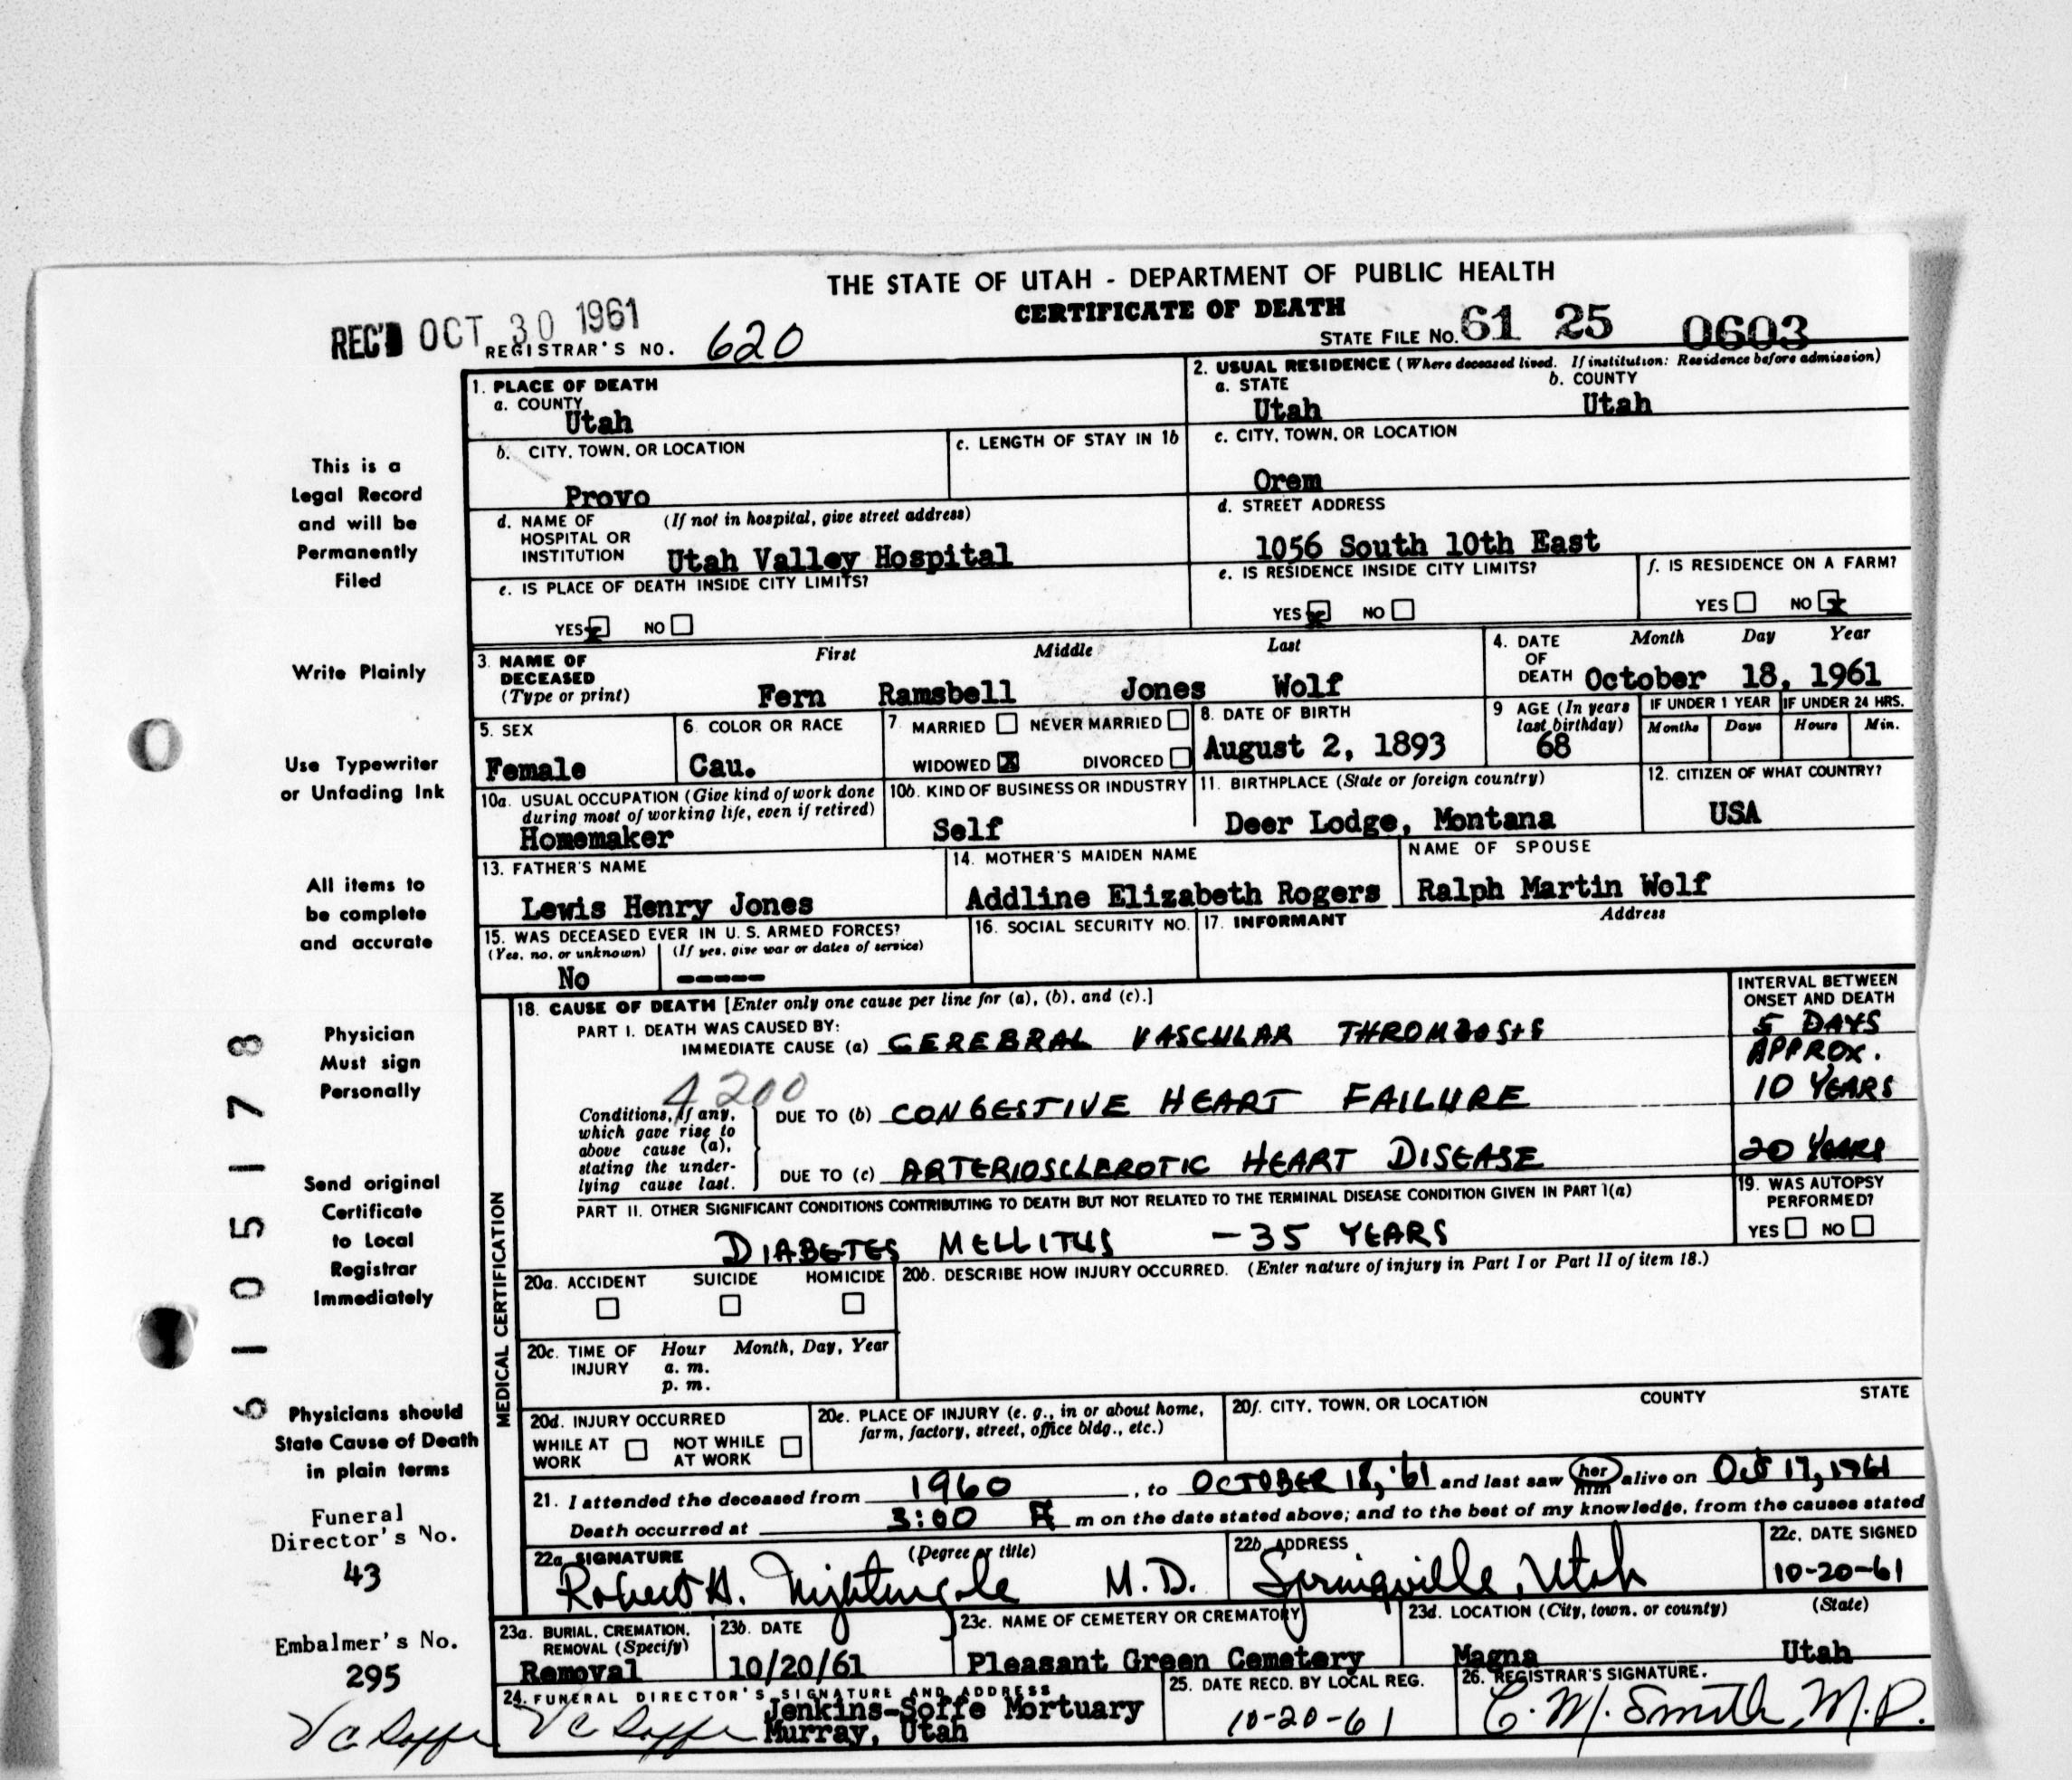 THE STATE OF UTAH - DEPARTMENT OF PUBLIC HEALTH
CERTIFICATE OF DEATH
REC'D OCT 30 1961
REGISTRAR'S NO. 620
STATE FILE NO. 61 25 0603
1. PLACE OF DEATH
a. COUNTY
Utah
2. USUAL RESIDENCE (Where deceased lived. If institution: Residence before admission)
a. STATE b. COUNTY
Utah Utah
b. CITY, TOWN, OR LOCATION
Provo
c. LENGTH OF STAY IN 1b
c. CITY, TOWN, OR LOCATION
Orem
d. NAME OF (If not in hospital, give street address)
HOSPITAL OR
INSTITUTION Utah Valley Hospital
d. STREET ADDRESS
1056 South 10th East
e. IS PLACE OF DEATH INSIDE CITY LIMITS?
YES x NO
e. IS RESIDENCE INSIDE CITY LIMITS?
YES x NO
f. IS RESIDENCE ON A FARM?
YES NO x
3. NAME OF First Middle Last
DECEASED
(Type or print) Fern Ramsbell Jones Wolf
4. DATE Month Day Year
OF
DEATH October 18, 1961
5. SEX
Female
6. COLOR OR RACE
Cau.
7. MARRIED NEVER MARRIED
WIDOWED X DIVORCED
8. DATE OF BIRTH
August 2, 1893
9 AGE (In years
last birthday)
68
IF UNDER 1 YEAR IF UNDER 24 HRS.
Months Days Hours Min.
10a. USUAL OCCUPATION (Give kind of work done
during most of working life, even if retired)
Homemaker
10b. KIND OF BUSINESS OR INDUSTRY
Self
11. BIRTHPLACE (State or foreign country)
Deer Lodge, Montana
12. CITIZEN OF WHAT COUNTRY?
USA
13. FATHER'S NAME
Lewis Henry Jones
14. MOTHER'S MAIDEN NAME
Addline Elizabeth Rogers
NAME OF SPOUSE
Ralph Martin Wolf
15. WAS DECEASED EVER IN U. S. ARMED FORCES?
(Yes, no, or unknown) (If yes, give war or dates of service)
No -----
16. SOCIAL SECURITY NO.
17. INFORMANT Address
MEDICAL CERTIFICATION
18. CAUSE OF DEATH [Enter only one cause per line for (a), (b), and (c).]
INTERVAL BETWEEN
ONSET AND DEATH
PART I. DEATH WAS CAUSED BY:
IMMEDIATE CAUSE (a) CEREBRAL VASCULAR THROMBOSIS 5 DAYS
APPROX.
4200
Conditions, if any,
which gave rise to
above cause (a),
stating the under-
lying cause last.
DUE TO (b) CONGESTIVE HEART FAILURE 10 YEARS
DUE TO (c) ARTERIOSCLEROTIC HEART DISEASE 20 YEARS
PART II. OTHER SIGNIFICANT CONDITIONS CONTRIBUTING TO DEATH BUT NOT RELATED TO THE TERMINAL DISEASE CONDITION GIVEN IN PART I(a)
DIABETES MELLITUS - 35 YEARS
19. WAS AUTOPSY
PERFORMED?
YES NO
20a. ACCIDENT SUICIDE HOMICIDE
20b. DESCRIBE HOW INJURY OCCURRED. (Enter nature of injury in Part I or Part II of item 18.)
20c. TIME OF Hour Month, Day, Year
INJURY a. m.
p. m.
20d. INJURY OCCURRED
WHILE AT NOT WHILE
WORK AT WORK
20e. PLACE OF INJURY (e. g., in or about home,
farm, factory, street, office bldg., etc.)
20f. CITY, TOWN, OR LOCATION COUNTY STATE
21. I attended the deceased from 1960, to OCTOBER 18, '61 and last saw her him alive on Oct 17, 1961
Death occurred at 3:00 A m on the date stated above; and to the best of my knowledge, from the causes stated
22a. SIGNATURE (Degree or title)
Robert H. Nightingale M.D.
22b. ADDRESS
Springville, Utah
22c. DATE SIGNED
10-20-61
23a. BURIAL, CREMATION,
REMOVAL (Specify)
Removal
23b. DATE
10/20/61
23c. NAME OF CEMETERY OR CREMATORY
Pleasant Green Cemetery
23d. LOCATION (City, town, or county) (State)
Magna Utah
24. FUNERAL DIRECTOR'S SIGNATURE AND ADDRESS
Jenkins-Soffe Mortuary
Murray, Utah
25. DATE RECD. BY LOCAL REG.
10-20-61
26. REGISTRAR'S SIGNATURE.
C. M. Smith, M.D.
This is a
Legal Record
and will be
Permanently
Filed
Write Plainly
Use Typewriter
or Unfading Ink
All items to
be complete
and accurate
Physician
Must sign
Personally
Send original
Certificate
to Local
Registrar
Immediately
Physicians should
State Cause of Death
in plain terms
Funeral
Director's No.
43
Embalmer's No.
295
V C Soffe V C Soffe
6105178